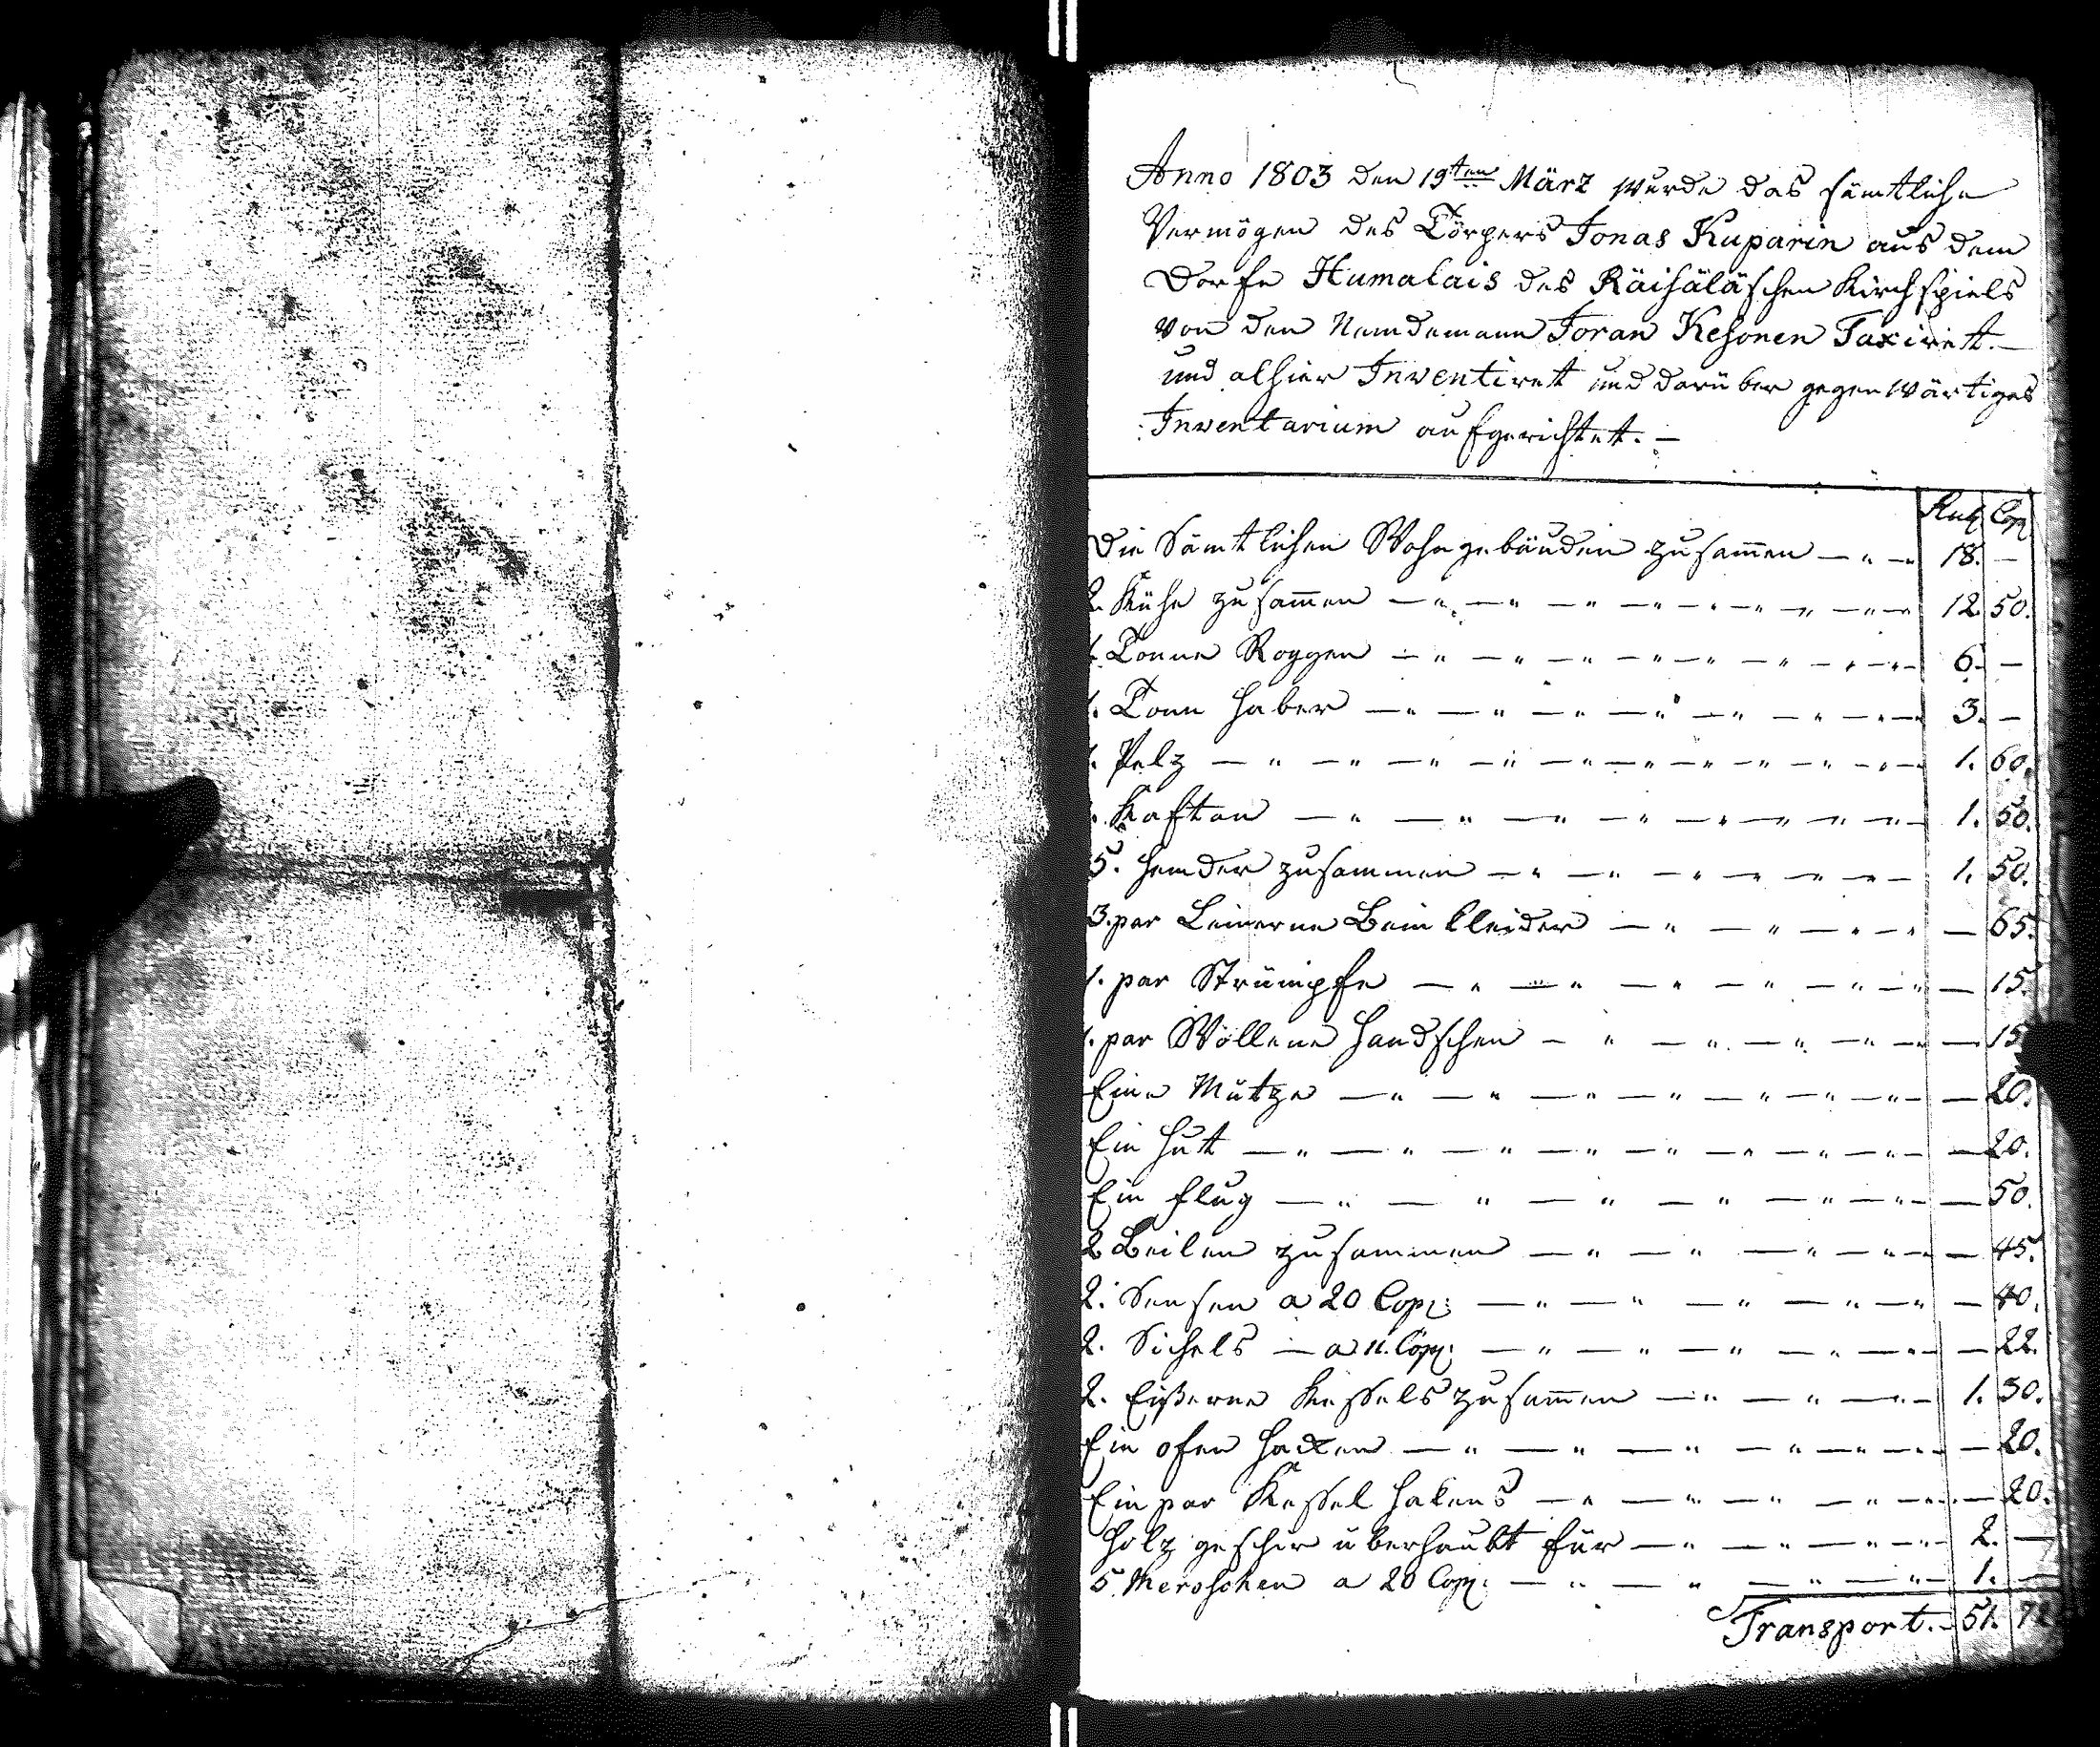 Anno 1803 den 19ten März wurde das sämtliche
Vermögen des Törpers Jonas Kuparin aus dem
Dorfe Humalais des Räisäläschen Kirchspiels
von den Nemdemann Joran Kesonen Taxirett.—
und alhier Inventirett und darüber gegenwärtiges
Inventarium aufgerichtet.—
Rub Cop
Die Sämtlichen Wohngebäuden zusam̄en — " — 18. —
2. Kühe zusam̄en — " — 12 50.
1. Tonne Roggen — " — 6. —
1. Tonn Haber — " — 3. —
1. Pelz — " — 1. 60.
1. Kaftan — " — 1. 50.
5. Hemder zusammen — " — 1. 50.
3. par Leinerne Beinkleider — " — 65.
1. par Strümpfe — " — 15.
1. par Wollene Handschen — " — 15
Eine Mütze — " — 20.
Ein Hutt — " — 20.
Ein Flug — " — 50.
2 Beilen zusammen — " — 45.
2. Sensen a 20 Cop: — " — 40.
2. Sichels — a 11. Cop: — " — 22.
2. Eißerne Kessels zusam̄en — " — 1. 30.
Ein ofen Hacken — " — 20.
Ein par Kessel Hakens — " — 20.
Holz geschir überhaubt für — " — 2. —
5 a 20 Cop: — " — 1. —
Transport. — 51. 72